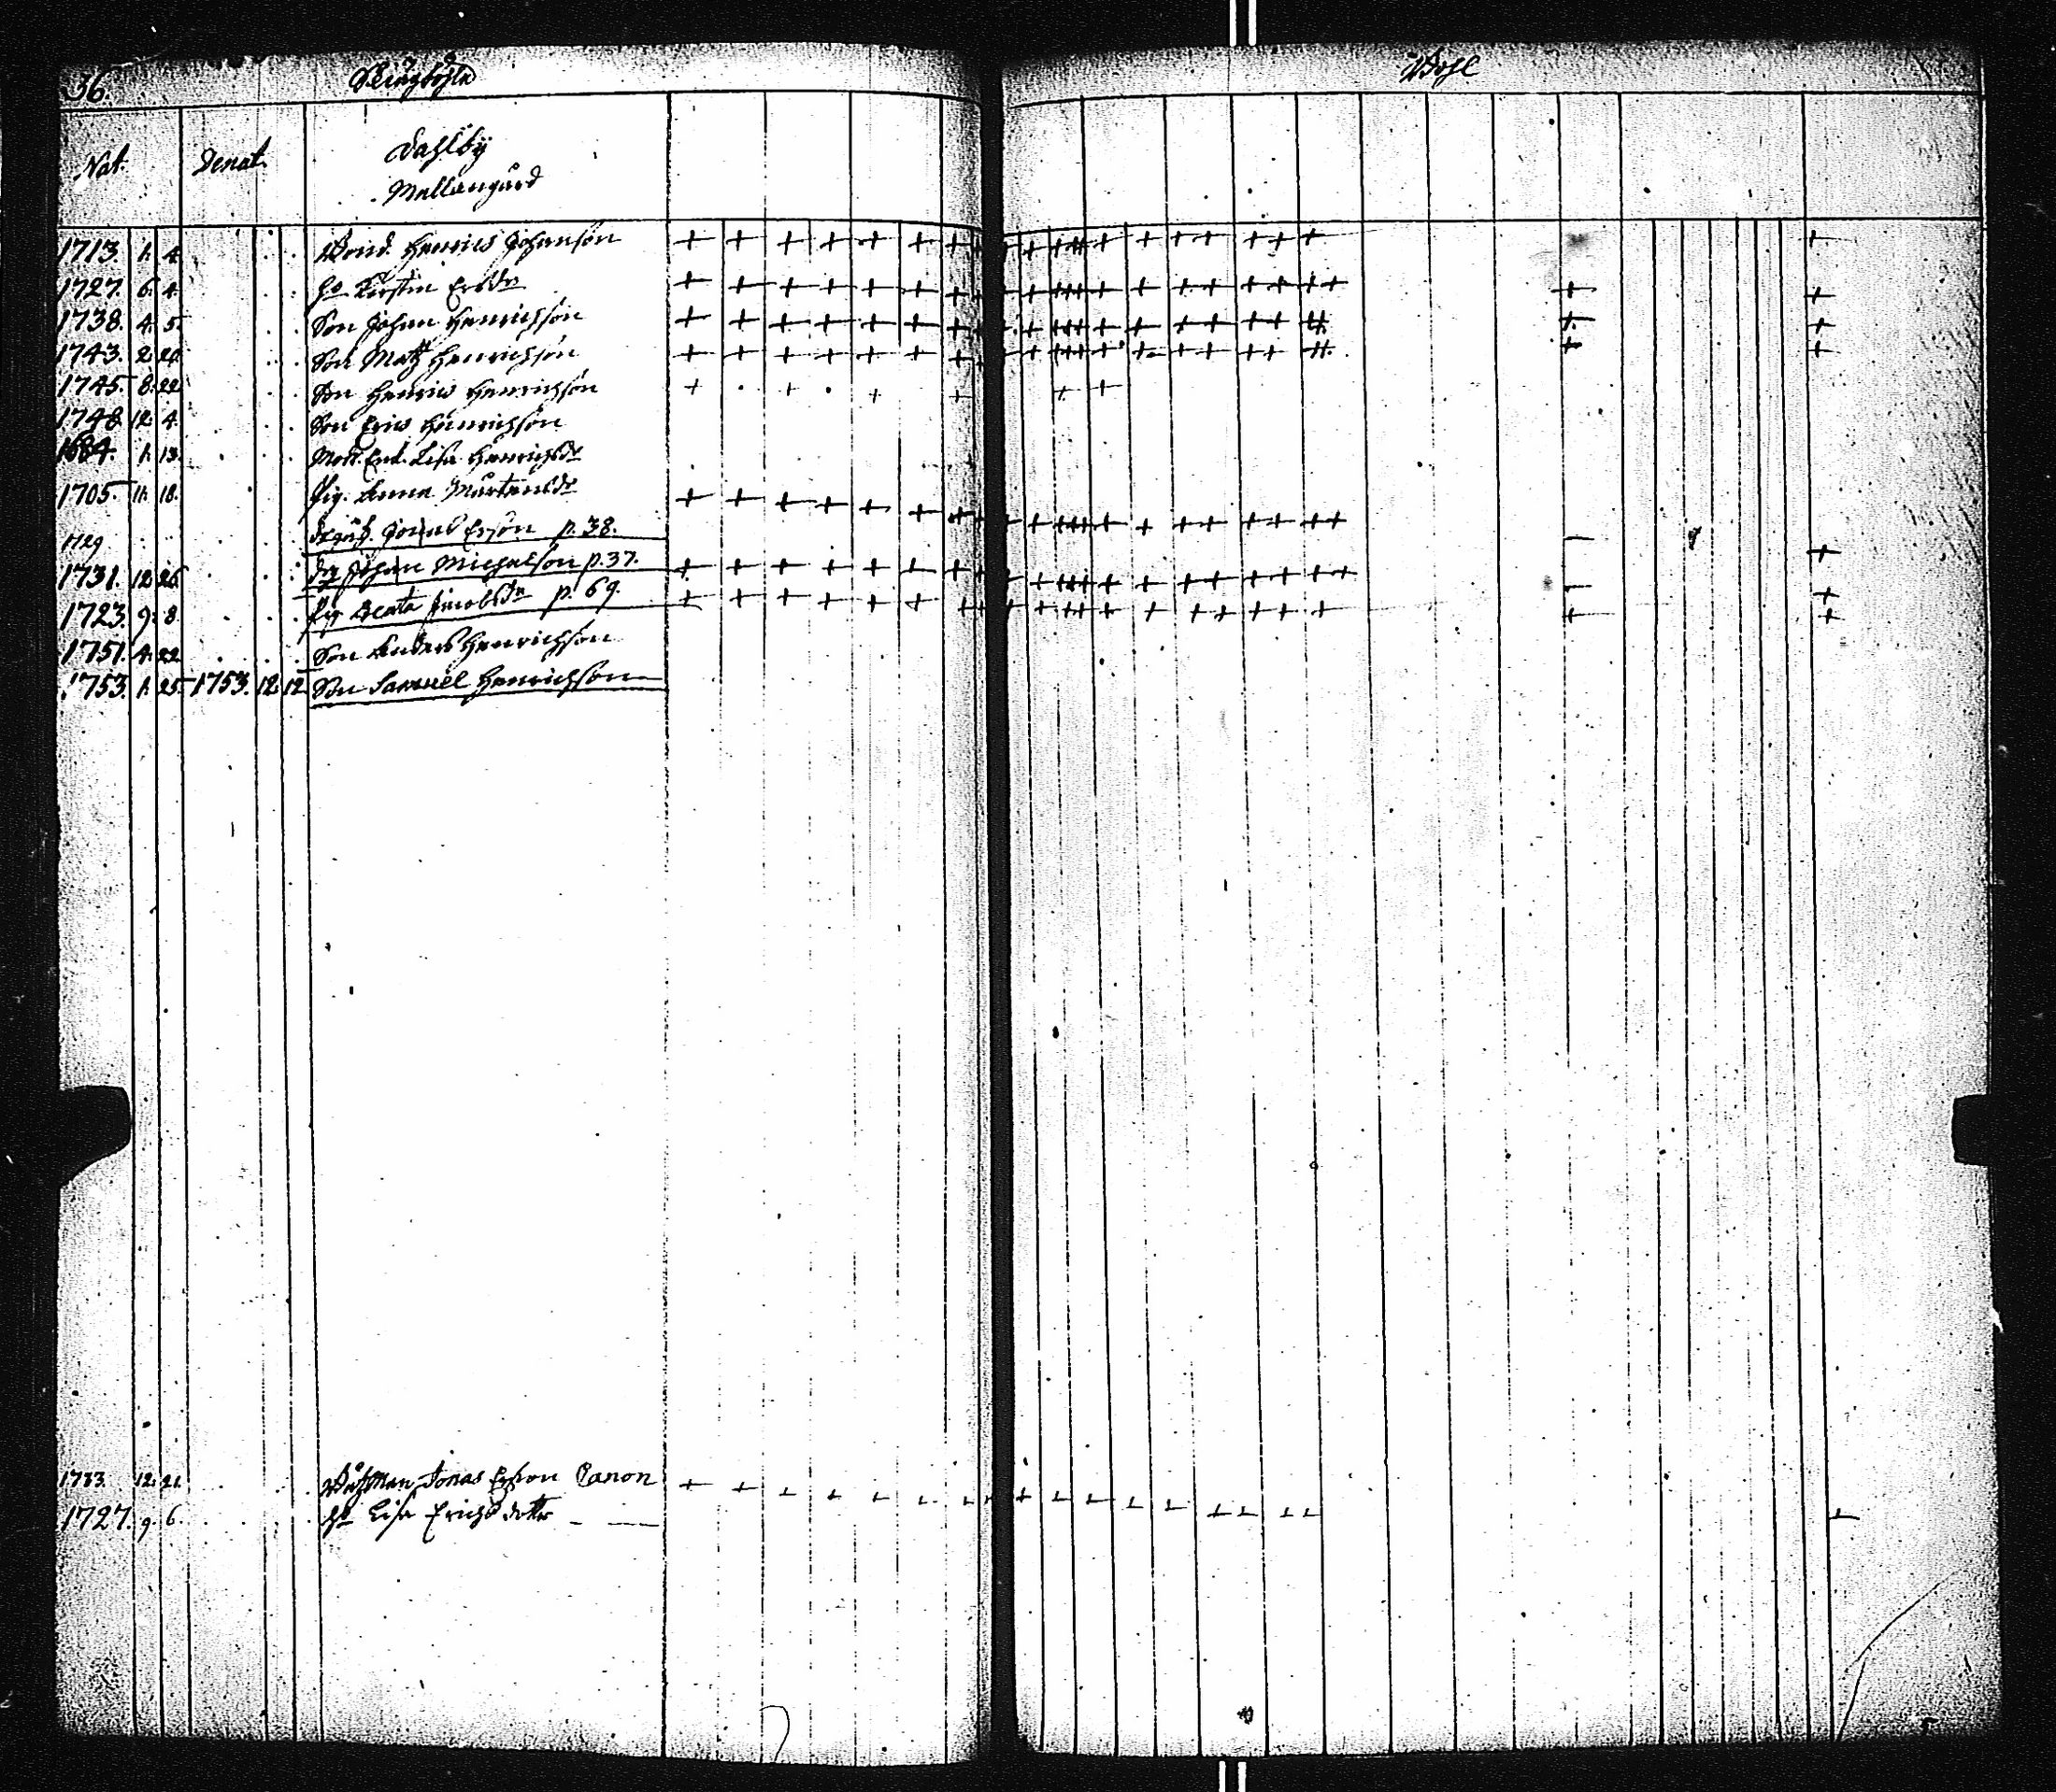 36.
Nat. Denat. Dahlby
Mellangård
1713. 1. 4. Bond. Henric Johanson
1727. 6. 4. h:o Kirstin Ersdr
1738. 4. 5. Son Johan Henrichson
1743. 2. Son Matz Henrichson
1745. 8. 22. Son Henric Henrichson
1748. 12. 4. Son Eric Henrichson
1684. 1. 13. Lisa Henrichsdr
1705. 11. 18. Pig. Anna Mårtensdr
1729 Jonas Erson p. 38.
1731. 12. 26. Dr. Johan Michalson p. 37.
1723. 9. 8. Pig Beata Jacobsdr p. 69.
1751. 4. 22 Son Anders Henrichson
1753. 1. 25. 1753. 12. 12 Son Samuel Henrichson
1733. 12. 21. Jonas Erson Canon
1727. 9. 6. h:o Lisa Erichsdotter